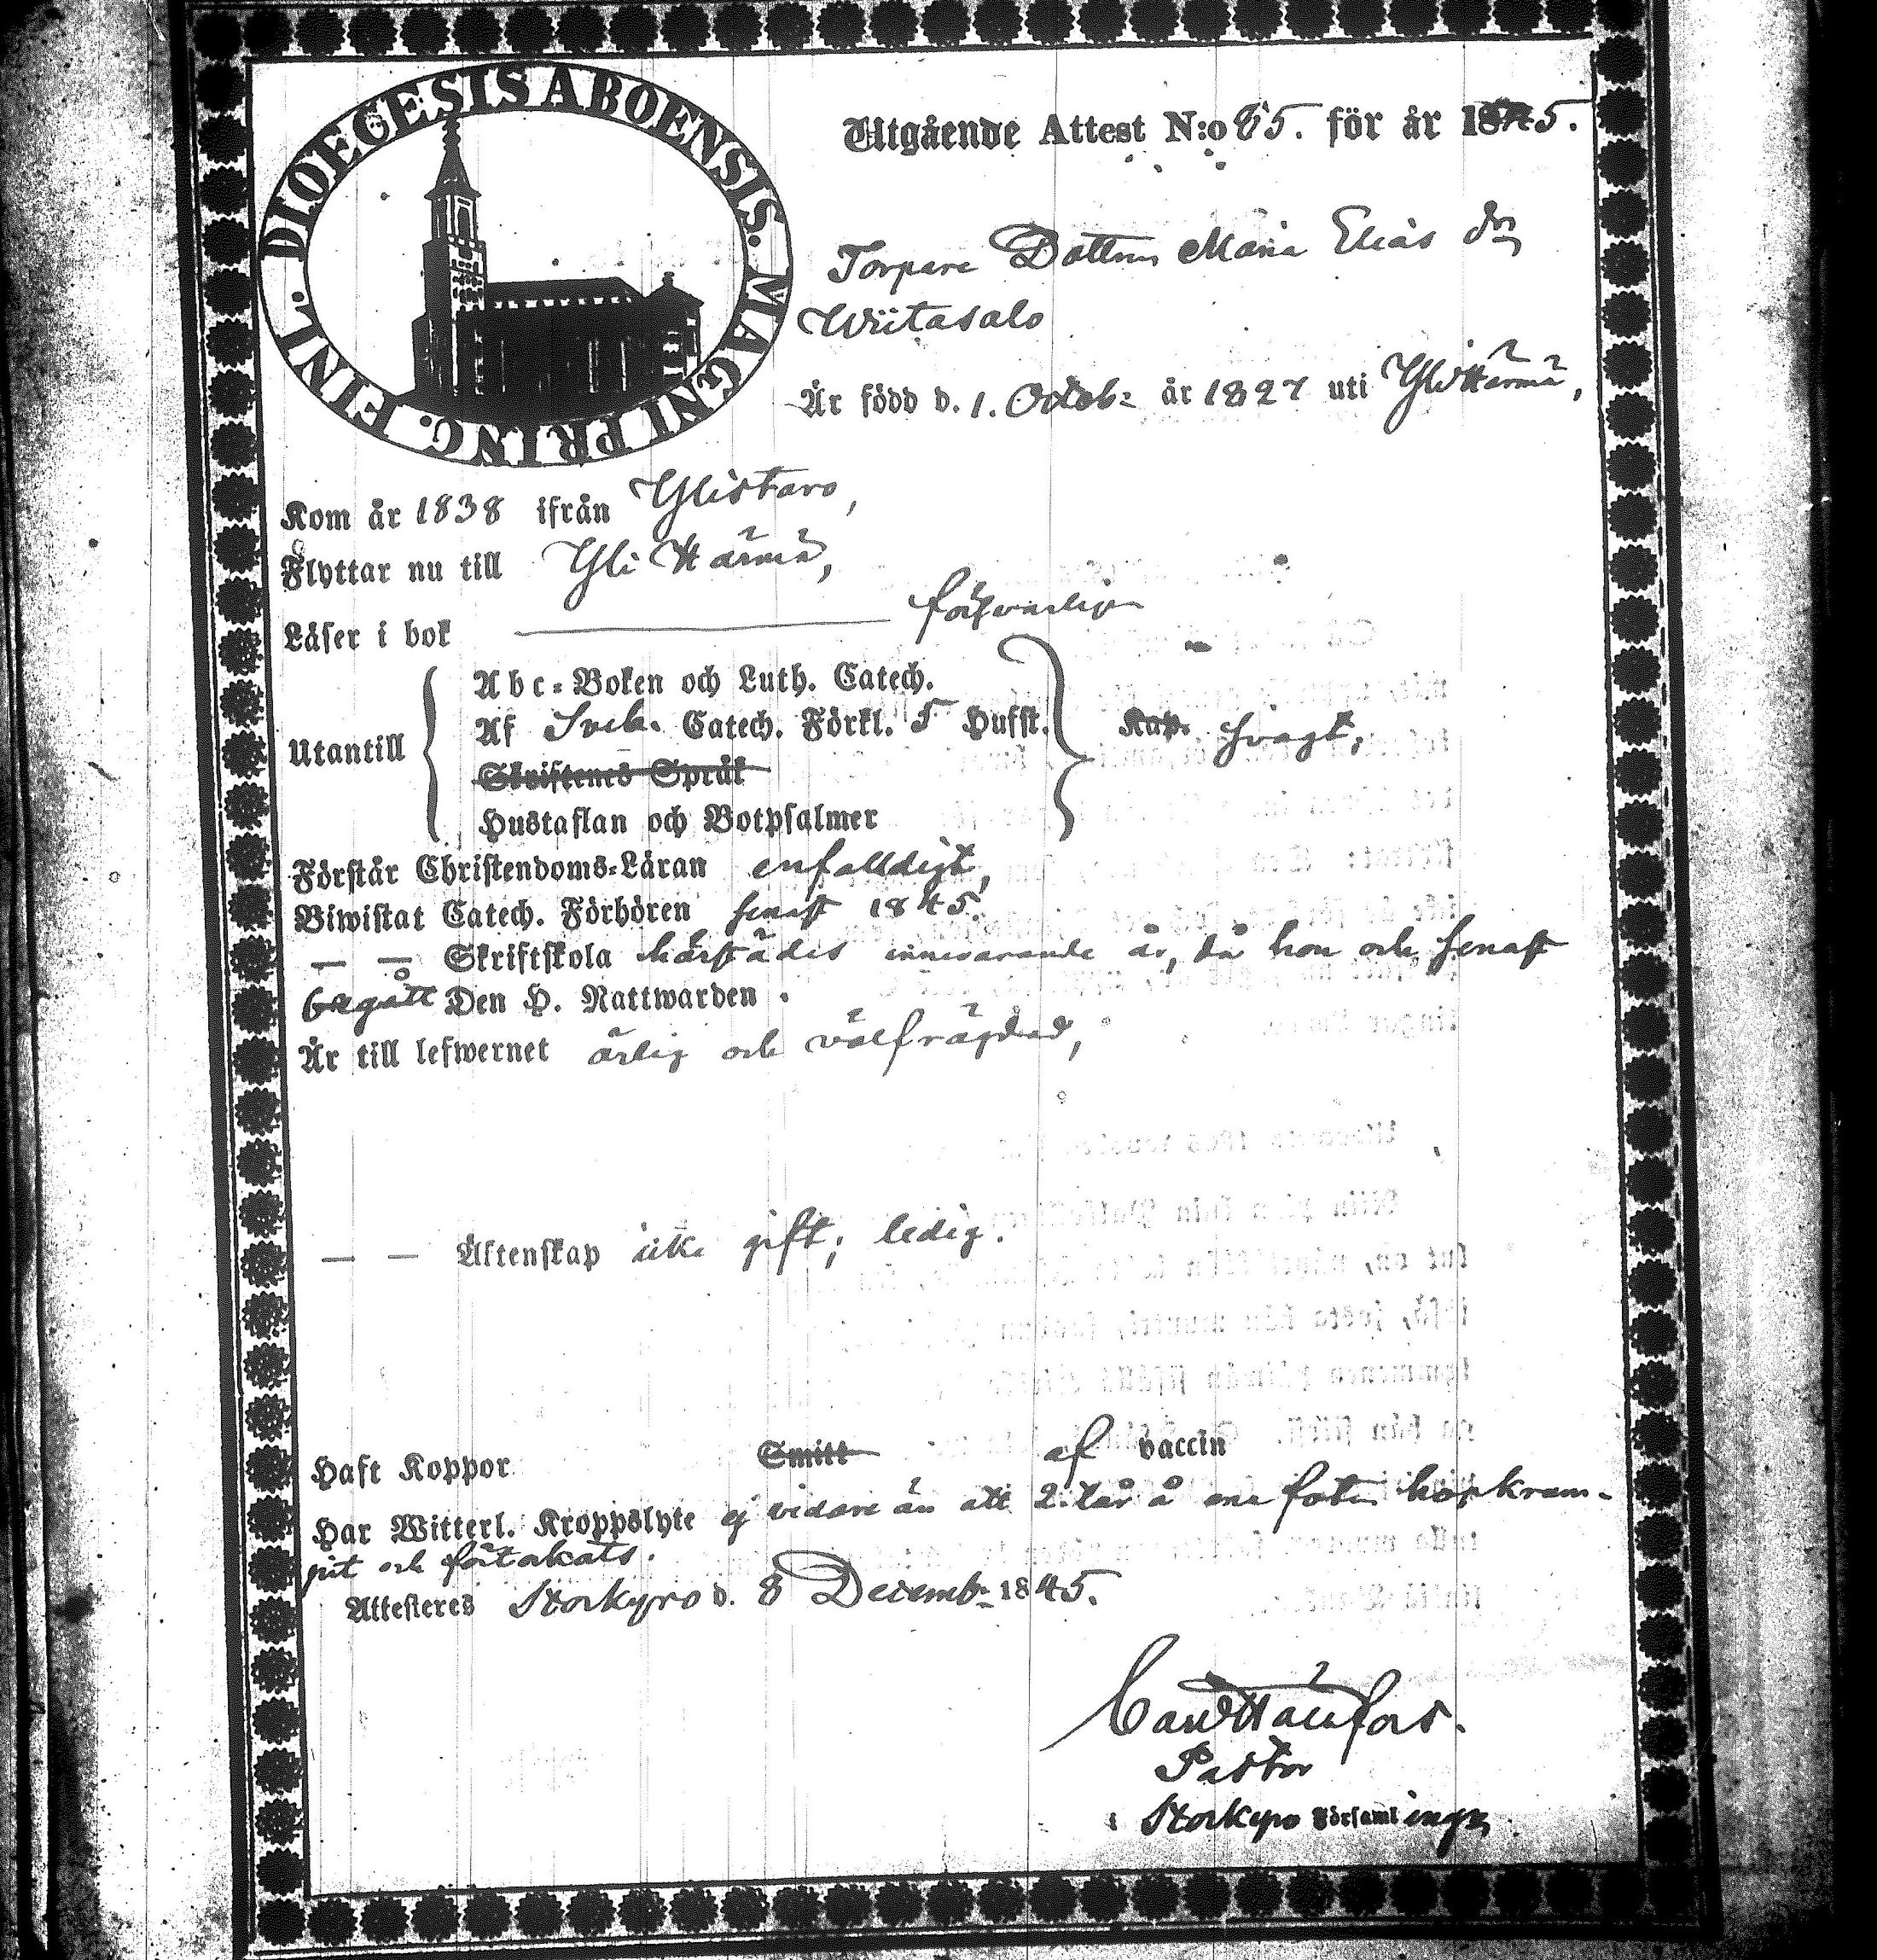 DIOECESIS ABOENSIS. MAGNI PRINC. FINL.
Utgående Attest N:o 65. för år 1845.
Torpare Dottren Maria Elias dr
Wiitasalo
Är född d. 1. Octob: år 1827 uti Yli Härmä,
Kom år 1838 ifrån Ylistaro,
Flyttar nu till Yli Härmä,
Läser i bok försvarligen
Abc-Boken och Luth. Catech.
Af Sveb. Catech. Förkl. 5 Hufst.
Utantill Kap. svagt,
Skriftenes Språk
Hustaflan och Botpsalmer
Förstår Christendoms-Läran enfalldigt,
Biwistat Catech. Förhören senast 1845.
— — Skriftskola härstädes innevarande år, då hon och senast
begått Den H. Nattwarden.
Är till lefwernet ärlig och välfrägdad,
— — Äktenskap icke gift; ledig.
Haft Koppor Smitt af vaccin
Har Witterl. Kroppslyte ej vidare än att 2 tår å ena foten hopkrum-
pit och
Attesteres Storkyro d. 8 Decemb: 1845.
Pastor
i Storkyro Församlinge